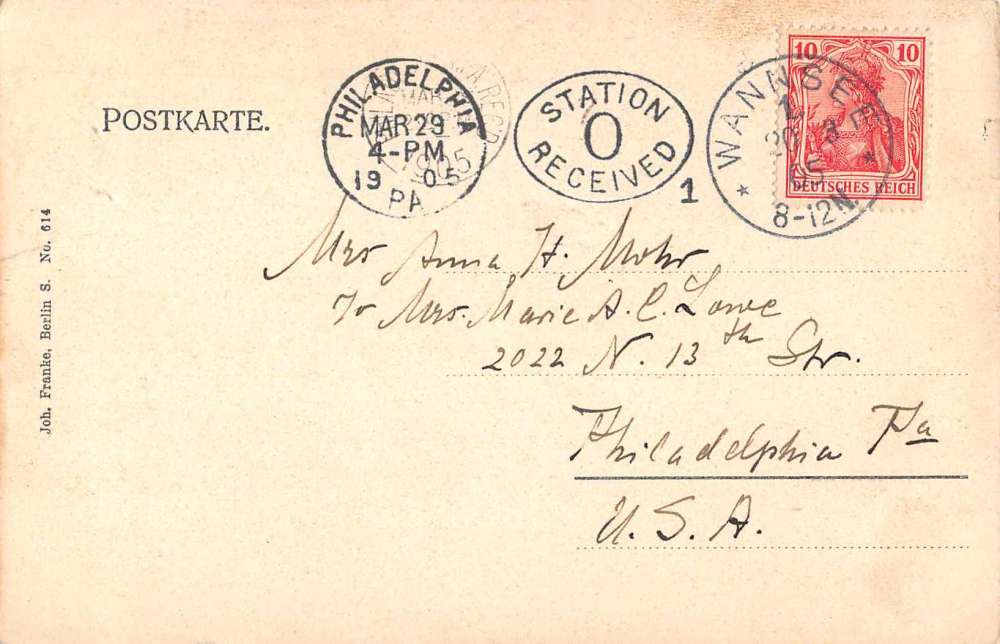 POSTKARTE.
PHILADELPHIA
MAR 29
4-PM
1905
PA
STATION
O
RECEIVED
1
WANNSEE
20 3
05
8-12N.
10 10
DEUTSCHES REICH
Mrs Anna H. Mohr
To Mrs. Marie A. C. Lowe
2022 N. 13th Str.
Philadelphia Pa
U.S.A.
Joh. Franke, Berlin S. No. 614